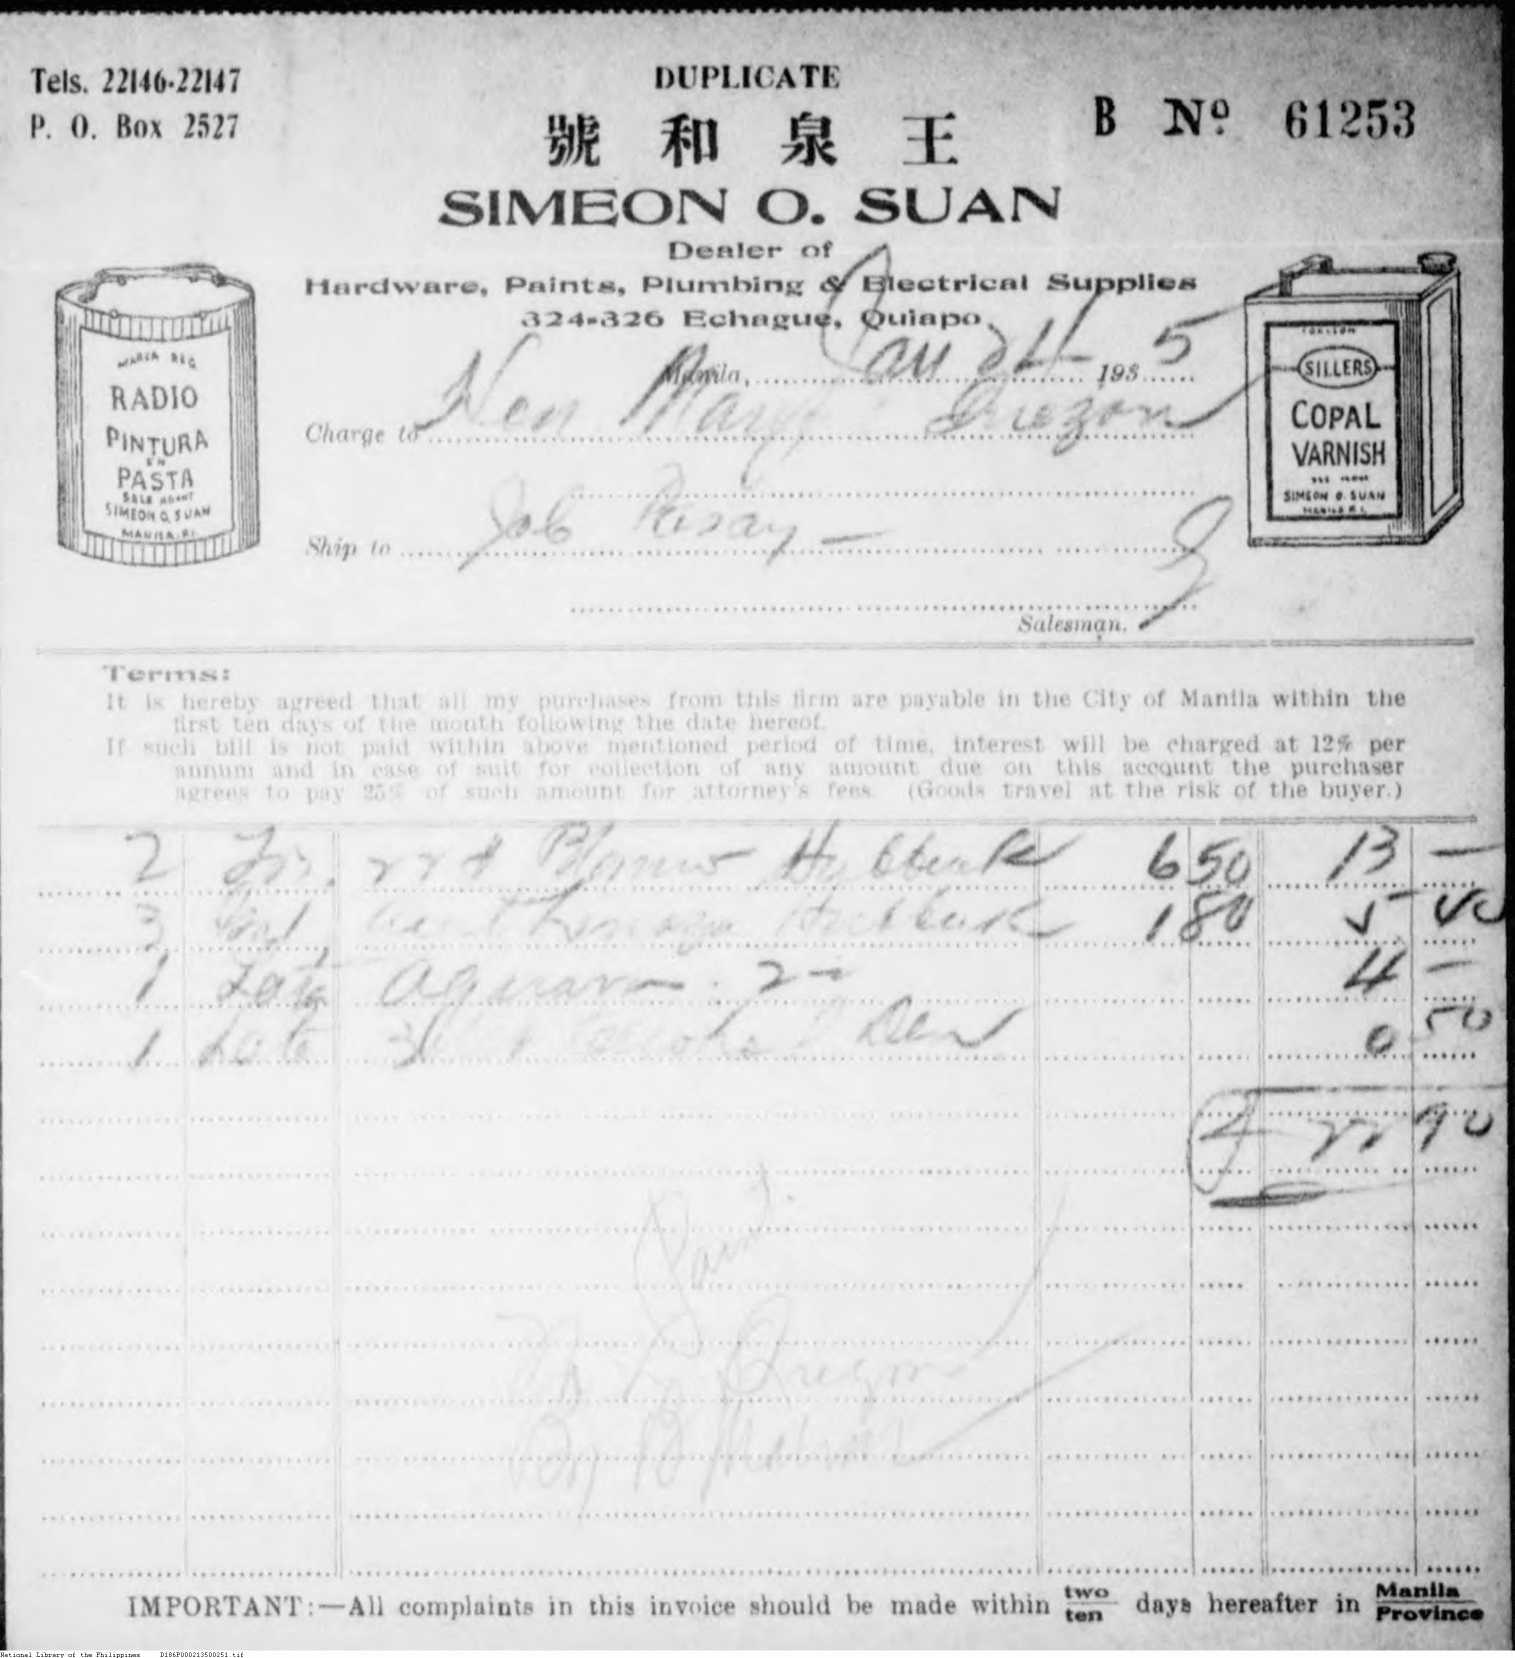 Tels. 22146-22147
P. O. Box 2527
DUPLICATE
B Nº 61253
號和泉王
SIMEON O. SUAN
Dealer of
Hardware, Paints, Plumbing & Electrical Supplies
324-326 Echague, Quiapo,
Manila, Jan 24 1935
Charge to Hen Mary Orezon
Ship to Job Pasay —
Salesman.
RADIO
PINTURA
EN
PASTA
SALE AGENT
SIMEON O. SUAN
MANILA. P.I.
SILLERS
COPAL
VARNISH
SIMEON O. SUAN
MANILA P.I.
Terms:
It is hereby agreed that all my purchases from this firm are payable in the City of Manila within the
first ten days of the month following the date hereof.
If such bill is not paid within above mentioned period of time, interest will be charged at 12% per
annum and in case of suit for collection of any amount due on this account the purchaser
agrees to pay 25% of such amount for attorney's fees. (Goods travel at the risk of the buyer.)
2 Blanco Hubbuck 6 50 13 —
3 Gal, Linaza Hubbuck 1 80 5 40
1 Lata Aguarras 4 —
1 Lata 0 50
22 90
IMPORTANT:—All complaints in this invoice should be made within two/ten days hereafter in Manila/Province
National Library of the Philippines D186P000213500251.tif